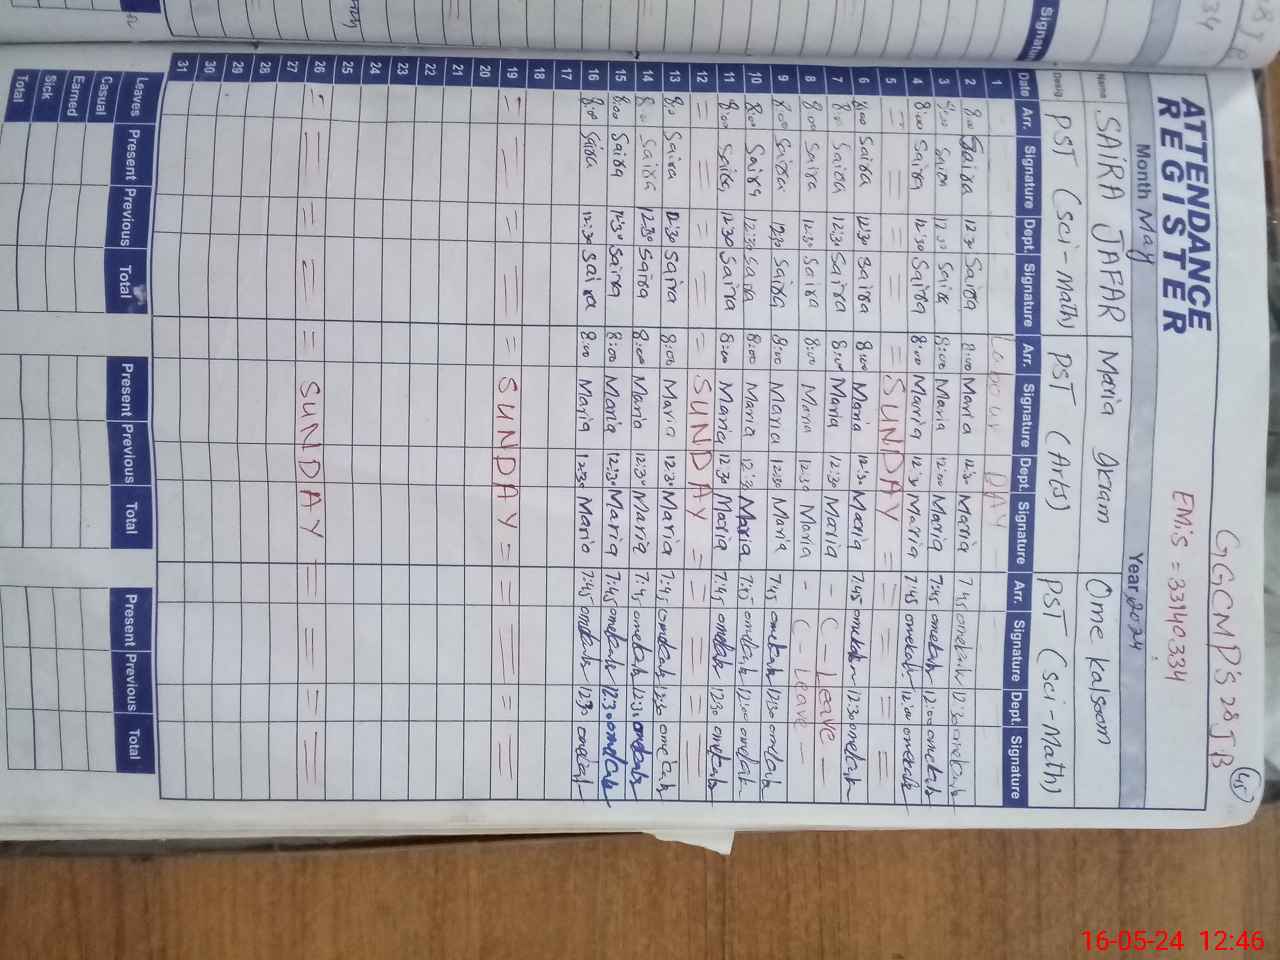 GGCMP's 28 JB
45
ATTENDANCE
REGISTER
EMIS = 33140334
Month May Year 2024
Name SAIRA JAFAR Maria Ikram Ome Kalsoom
Desig. PST (Sci-Math) PST (Arts) PST (Sci-Math)
Date Arr. Signature Dept. Signature Arr. Signature Dept. Signature Arr. Signature Dept. Signature
1 Labour DAY
2 8:00 Saira 12:30 Saira 8:00 Maria 12:30 Maria 7:45 omekals 12:30 omekals
3 8:00 Saira 12:30 Saira 8:00 Maria 12:00 Maria 7:45 omekals 12:00 omekals
4 8:00 Saira 12:30 Saira 8:00 Maria 12:30 Maria 7:45 omekals 12:00 omekals
5 = = = = = SUNDAY = = = =
6 8:00 Saira 12:30 Saira 8:00 Maria 12:30 Maria 7:45 omekals 12:30 omekals
7 8:00 Saira 12:30 Saira 8:00 Maria 12:30 Maria - ( - Leave -
8 8:00 Saira 12:30 Saira 8:00 Maria 12:30 Maria - ( - Leave -
9 8:00 Saira 12:30 Saira 8:00 Maria 12:30 Maria 7:45 omekals 12:30 omekals
10 8:00 Saira 12:30 Saira 8:00 Maria 12:30 Maria 7:45 omekals 12:00 omekals
11 8:00 Saira 12:30 Saira 8:00 Maria 12:30 Maria 7:45 omekals 12:30 omekals
12 = = = = = SUNDAY = = = = =
13 8:00 Saira 12:30 Saira 8:00 Maria 12:30 Maria 7:45 omekals 12:30 omekals
14 8:00 Saira 12:30 Saira 8:00 Maria 12:30 Maria 7:45 omekals 12:30 omekals
15 8:00 Saira 12:30 Saira 8:00 Maria 12:30 Maria 7:45 omekals 12:30 omekals
16 8:00 Saira 12:30 Saira 8:00 Maria 12:30 Maria 7:45 omekals 12:30 omekals
17
18
19 = = = = = SUNDAY = = = = =
20
21
22
23
24
25
26 = = = = = SUNDAY = = = =
27
28
29
30
31
Leaves Present Previous Total Present Previous Total Present Previous Total
Casual
Earned
Sick
Total
Signature
16-05-24 12:46